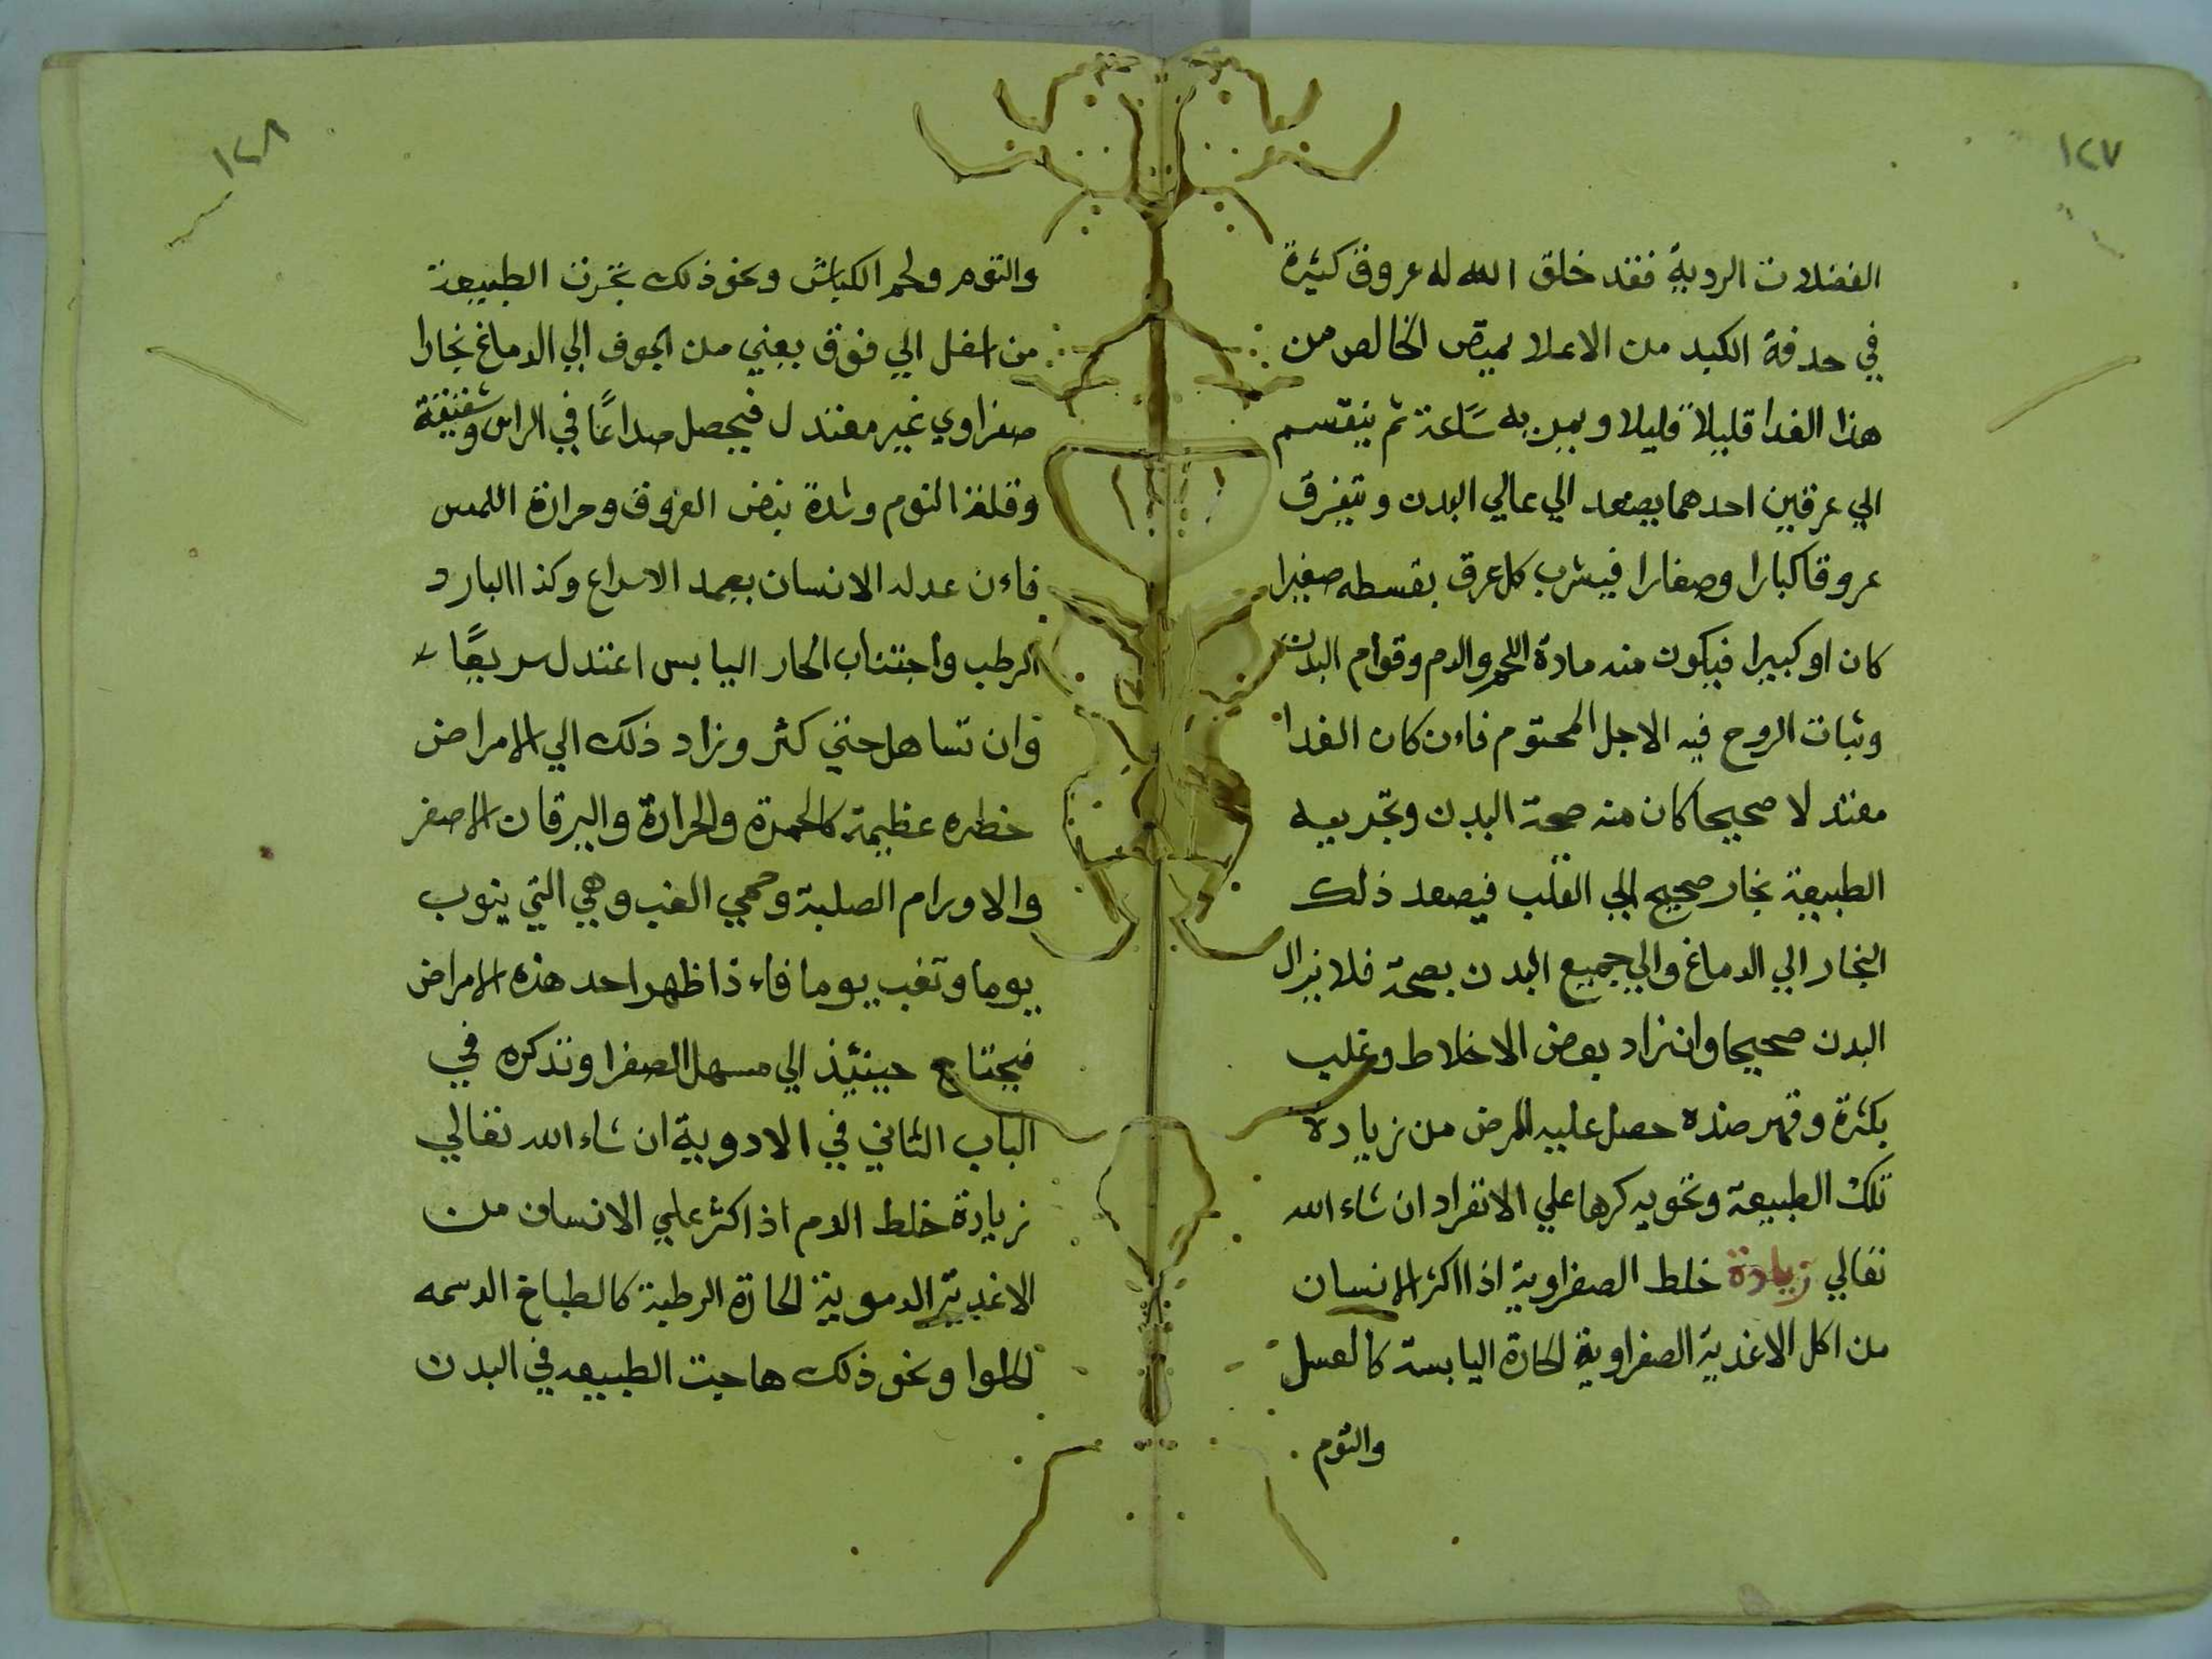 ١٢٧
الفضلات الردية فقد خلق الله له عروق كثيرة
في حدفة الكبد من الاعلا يمتص الخالص من
هذا الغدا قليلا قليلا ويمر به ساعة ثم ينقسم
الي عرقين احدهما يصعد الي عالي البدن ويتفرق
عروقا كبارا وصغارا فيشرب كل عرق بقسطه صغيرا
كان او كبيرا فيكون منه مادة اللحم والدم وقوام البدن
وثبات الروح فيه الاجل المحتوم فاءن كان الغدا
معتدلا صحيحا كان منه صحة البدن وتجري به
الطبيعة بخار صحيح الي القلب فيصعد ذلك
البخار الي الدماغ والي جميع البدن بصحة فلا يزال
البدن صحيحا وان زاد بعض الاخلاط وغلب
بكثرة وقهر ضده حصل عليه المرض من زيادة
تلك الطبيعة ونحو يذكرها علي الانفراد ان شاء الله
تعالي زيادة خلط الصفراوية اذا اكثر الانسان
من اكل الاغذية الصفراوية الحارة اليابسة كالعسل
والثوم
١٢٨
والثوم ولحم الكباش ونحو ذلك بخرت الطبيعة
من اسفل الي فوق يعني من الجوف الي الدماغ بخارا
صفراوي غير معتدل فيحصل صداعًا في الراس وشقيقة
وقلة النوم وشدة نبض العروق وحرارة اللمس
فاءن عدله الانسان بعمد الاسراع وكذا البارد
الرطب واجتناب الحار اليابس اعتدل سريعًا
وان تساهل حتي كثر وزاد ذلك الي الامراض
خطره عظيمة كالحمرة والحرارة واليرقان الاصفر
والاورام الصلبة وحمي الغب وهي التي ينوب
يوما وتغب يوما فاءذا ظهر احد هذه الامراض
فيحتاج حينئذ الي مسهل الصفرا ونذكره في
الباب الثاني في الادوية ان شاء الله تعالي
زيادة خلط الدم اذا كثر علي الانسان من
الاغذية الدموية الحارة الرطبة كالطباخ الدسمه
الحلوا ونحو ذلك هاجت الطبيعه في البدن